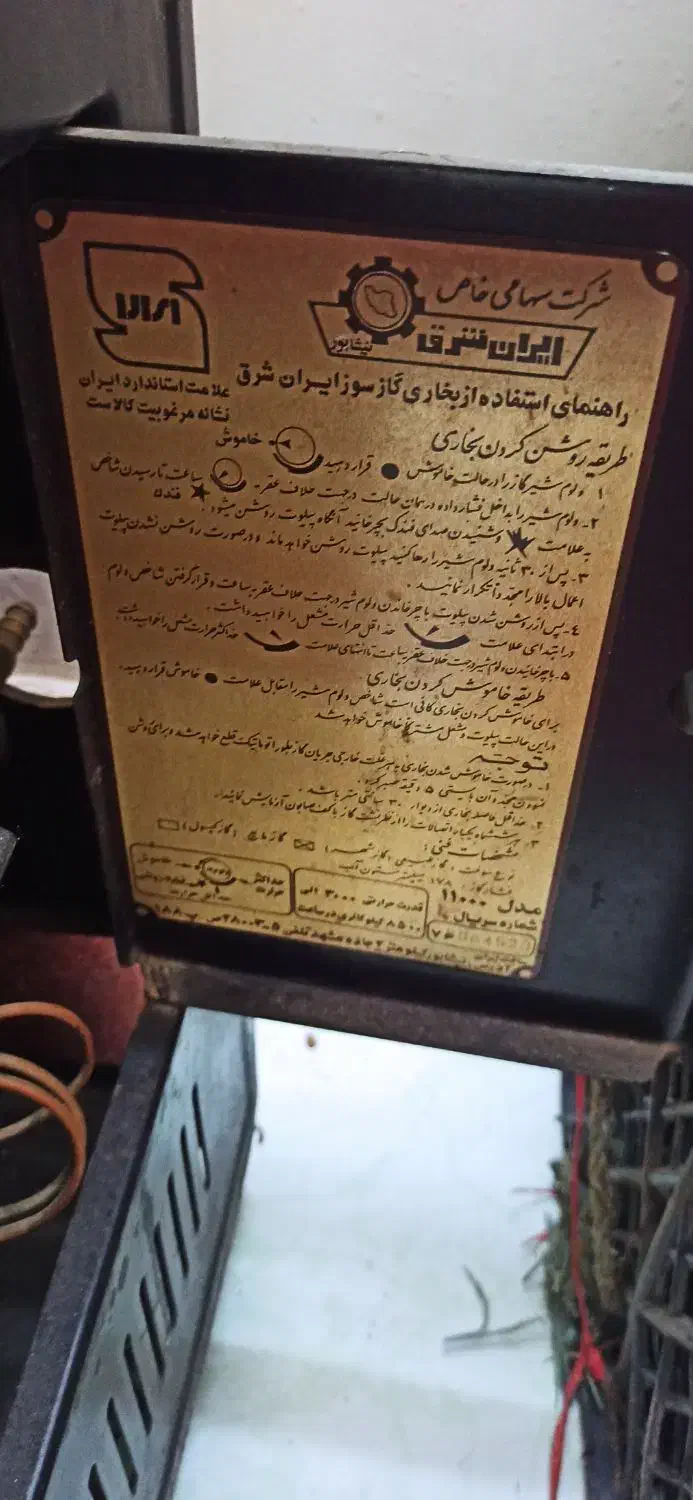 شرکت سهامی خاص
ایران شرق
نیشابور
علامت استاندارد ایران
نشانه مرغوبیت کالاست
راهنمای استفاده از بخاری گاز سوز ایران شرق
طریقه روشن کردن بخاری
۱- ولوم شیر گاز را در حالت خاموش ● قرار دهید خاموش
۲- ولوم شیر را به داخل فشار داده در همان حالت درجهت خلاف عقربه ساعت تا رسیدن شاخص
به علامت ★ و شنیدن صدای فندک بچرخانید آنگاه پیلوت روشن میشود. ★ فندک
۳- پس از ۳۰ ثانیه ولوم شیر را رها کنید پیلوت روشن خواهد ماند و درصورت روشن نشدن پیلوت
اعمال بالا را مجدداً تکرار نمائید.
۴- پس از روشن شدن پیلوت با چرخاندن ولوم شیر درجهت خلاف عقربه ساعت و قرار گرفتن شاخص ولوم
در ابتدای علامت حداقل حرارت مشعل را خواهید داشت.
۵- با چرخانیدن ولوم شیر درجهت خلاف عقربه ساعت تا انتهای علامت حداکثر حرارت مشعل را خواهید داشت.
طریقه خاموش کردن بخاری
برای خاموش کردن بخاری کافی است شاخص ولوم شیر را مقابل علامت ● خاموش قرار دهید.
در این حالت پیلوت و مشعل خاموش خواهد شد
توجه
۱- درصورت خاموش شدن بخاری به هر علت خارجی جریان گاز بطور اتوماتیک قطع خواهد شد و برای روشن
نمودن مجدد آن بایستی ۵ دقیقه صبر کرد.
۲- حداقل فاصله بخاری از دیوار ۳۰ سانتی متر باشد.
۳- اتصالات را از نظر نشت گاز با کف صابون آزمایش نمائید.
مشخصات فنی:
نوع سوخت: گاز طبیعی (گاز شهر) گاز مایع (گاز کپسول)
فشار گاز: ۱۷۸ میلیمتر ستون آب
مدل ۱۱۰۰۰
شماره سریال
قدرت حرارتی ۳۰۰۰ الی
۸۵۰۰ کیلو کالری در ساعت
حداکثر حرارت
خاموش
نیشابور کیلومتر ۲ جاده مشهد تلفن ۵-۲۸۰۰۳ ص پ ۱۸۸